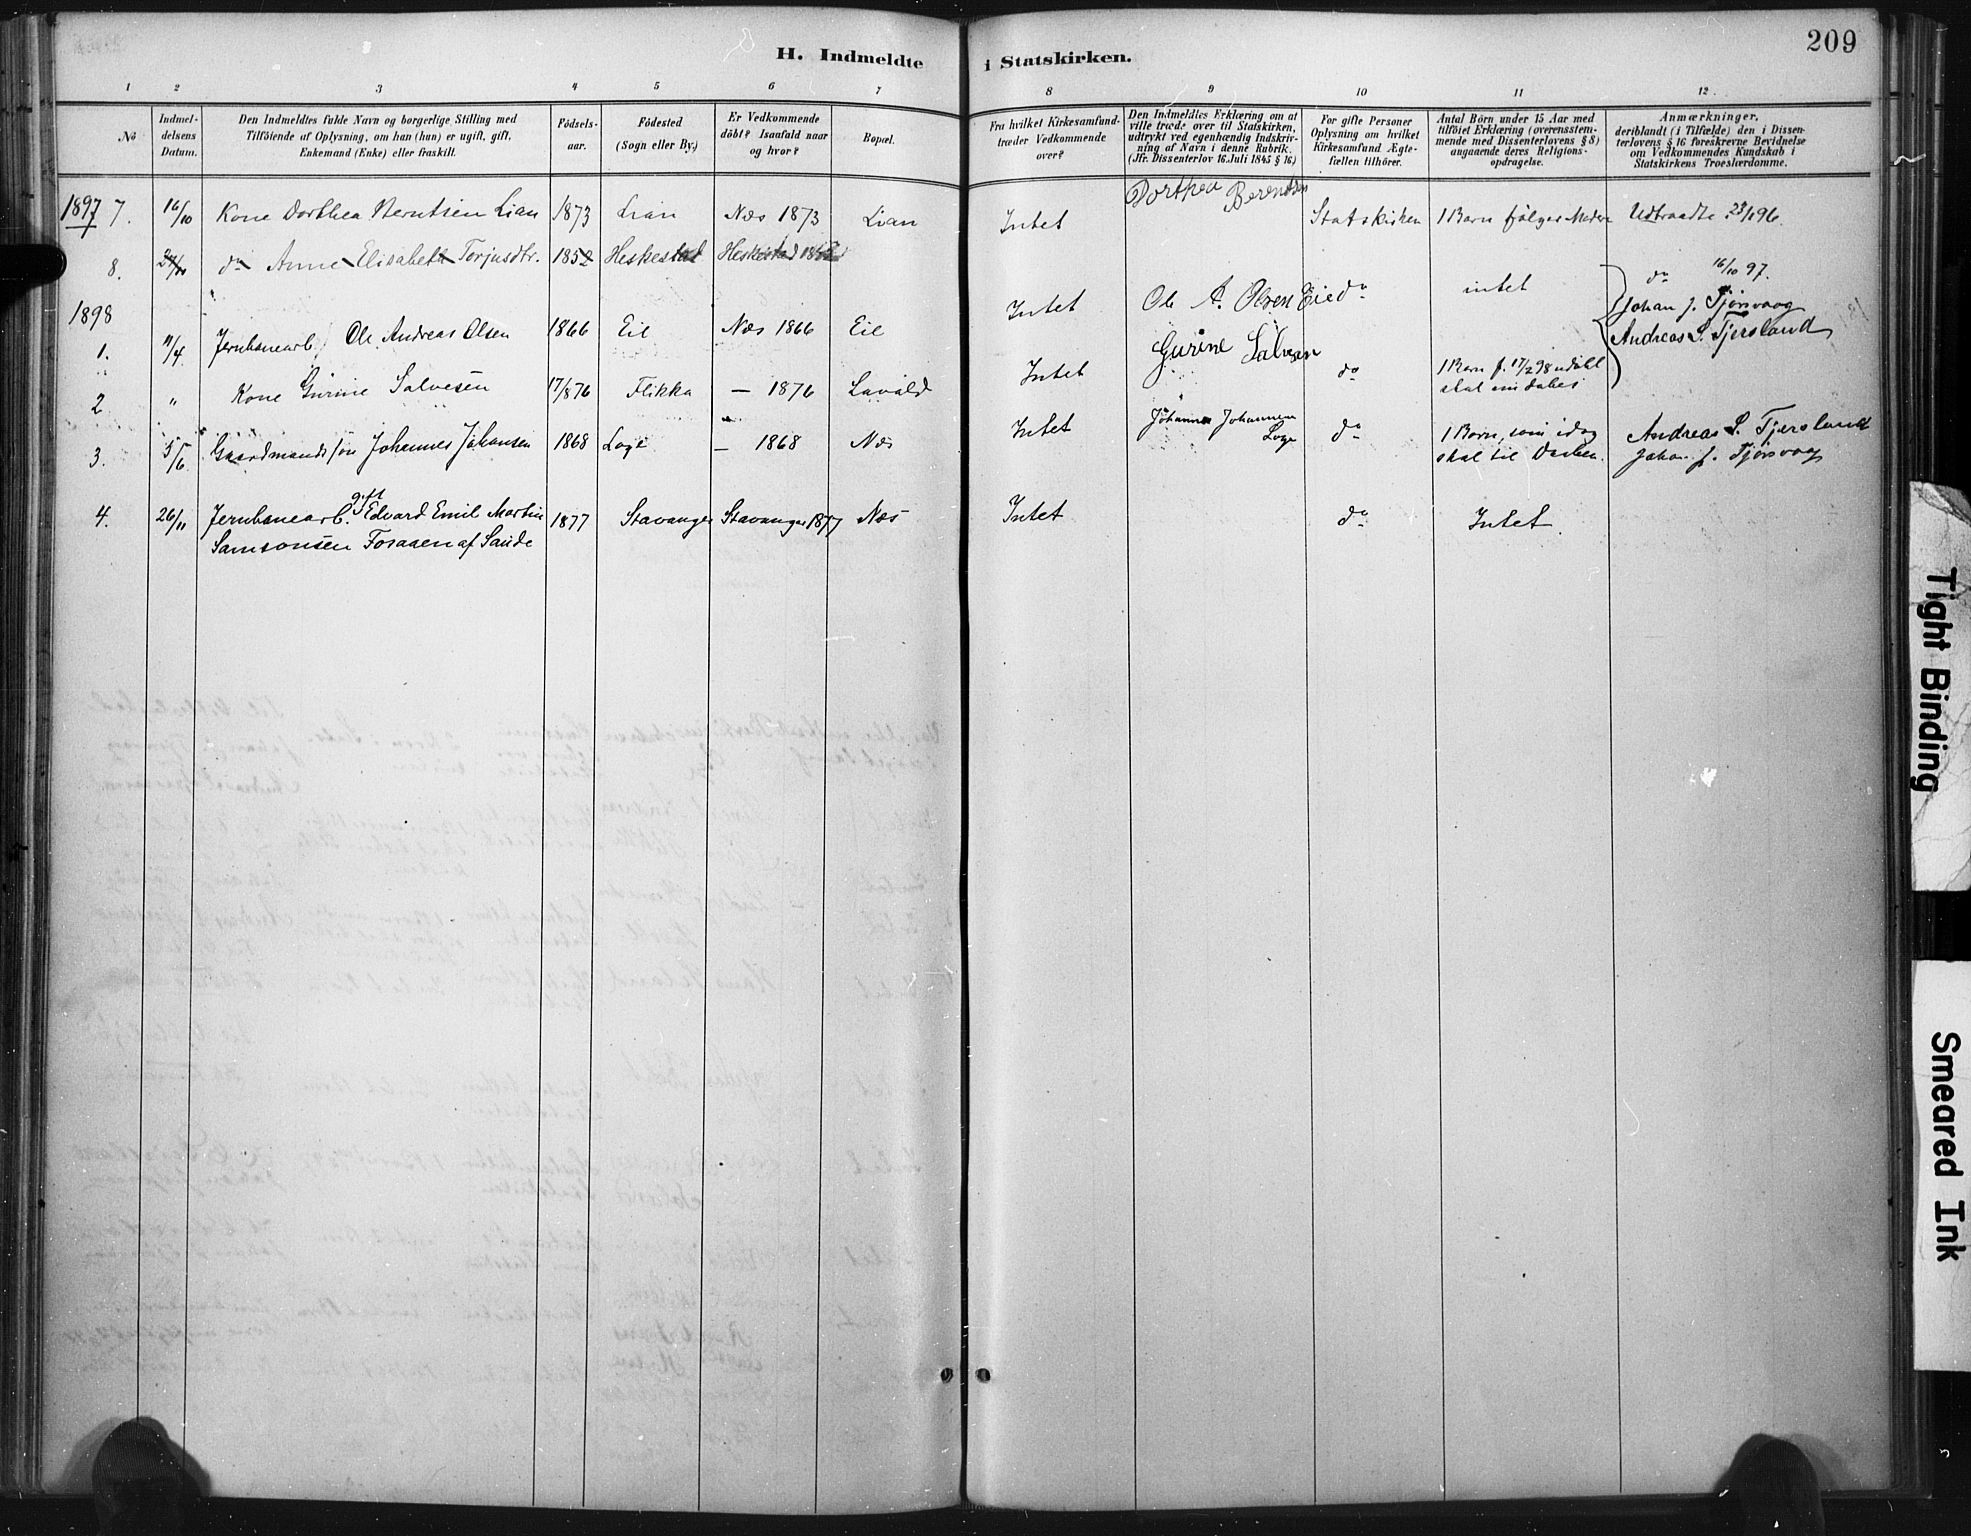 209
H. Indmeldte i Statskirken.
1 2 3 4 5 6 7 8 9 10 11 12.
No
Indmel-
delsens
Datum.
Den Indmeldtes fulde Navn og borgerlige Stilling med
Tilföiende af Oplysning, om han (hun) er ugift, gift,
Enkemand (Enke) eller fraskilt.
Födsels-
aar.
Födested
(Sogn eller By.)
Er Vedkommende
döbt? Isaafald naar
og hvor?
Bopæl.
Fra hvilket Kirkesamfund
træder Vedkommende
over?
Den Indmeldtes Erklæring om at
ville træde over til Statskirken,
udtrykt ved egenhændig Indskriv-
ning af Navn i denne Rubrik.
(Jfr. Dissenterlov 16 Juli 1845 § 16)
For gifte Personer
Oplysning om hvilket
Kirkesamfund Ægte-
fællen tilhörer.
Antal Börn under 15 Aar med
tilföiet Erklæring (overensstem-
mende med Dissenterlovens § 8)
angaaende deres Religions-
opdragelse.
Anmærkninger,
deriblandt (i Tilfælde) den i Dissen-
terlovens § 16 foreskrevne Bevidnelse
om Vedkommendes Kundskab i
Statskirkens Troeslærdomme.
1897 7. 16/10 Kone Dorthea Berntsen Lian 1873 Lian Næs 1873 Lian Intet Dorthea Berentsen Statskirken 1 Barn fölger Moder Udtraadte 29/1 96.
8. do Anne Elisabeth Torjusdtr. 1852 Heskestad Heskestad
1898
1. 11/4 Jernbanearb. Ole Andreas Olsen 1866 Eie Næs 1866 Eie Intet Ole A. Olsen Eie do intet do 16/10 97.
Johan J. Tjörsvaag
Andreas S. Tjersland
2 " Kone Gurine Salvesen 17/8 76 Flikka — 1876 Lavold Intet Gurine Salvesen do 1 Barn f. 17/2 98 udöbt
skal nu döbes
3. 5/6 Gaardmandssön Johannes Johansen 1868 Loge — 1868 Næs Intet Johannes Johannesen
Loge do 1 Barn, som idag
skal til Daaben. Andreas S. Tjersland
Johan J. Tjörsvaag
4. 26/11 Jernbanearb. gift Edvard Emil Martin
Samsonsen Fosaaen af Sande 1877 Stavanger Stavanger 1877 Næs Intet do Intet.
Tight Binding
Smeared Ink